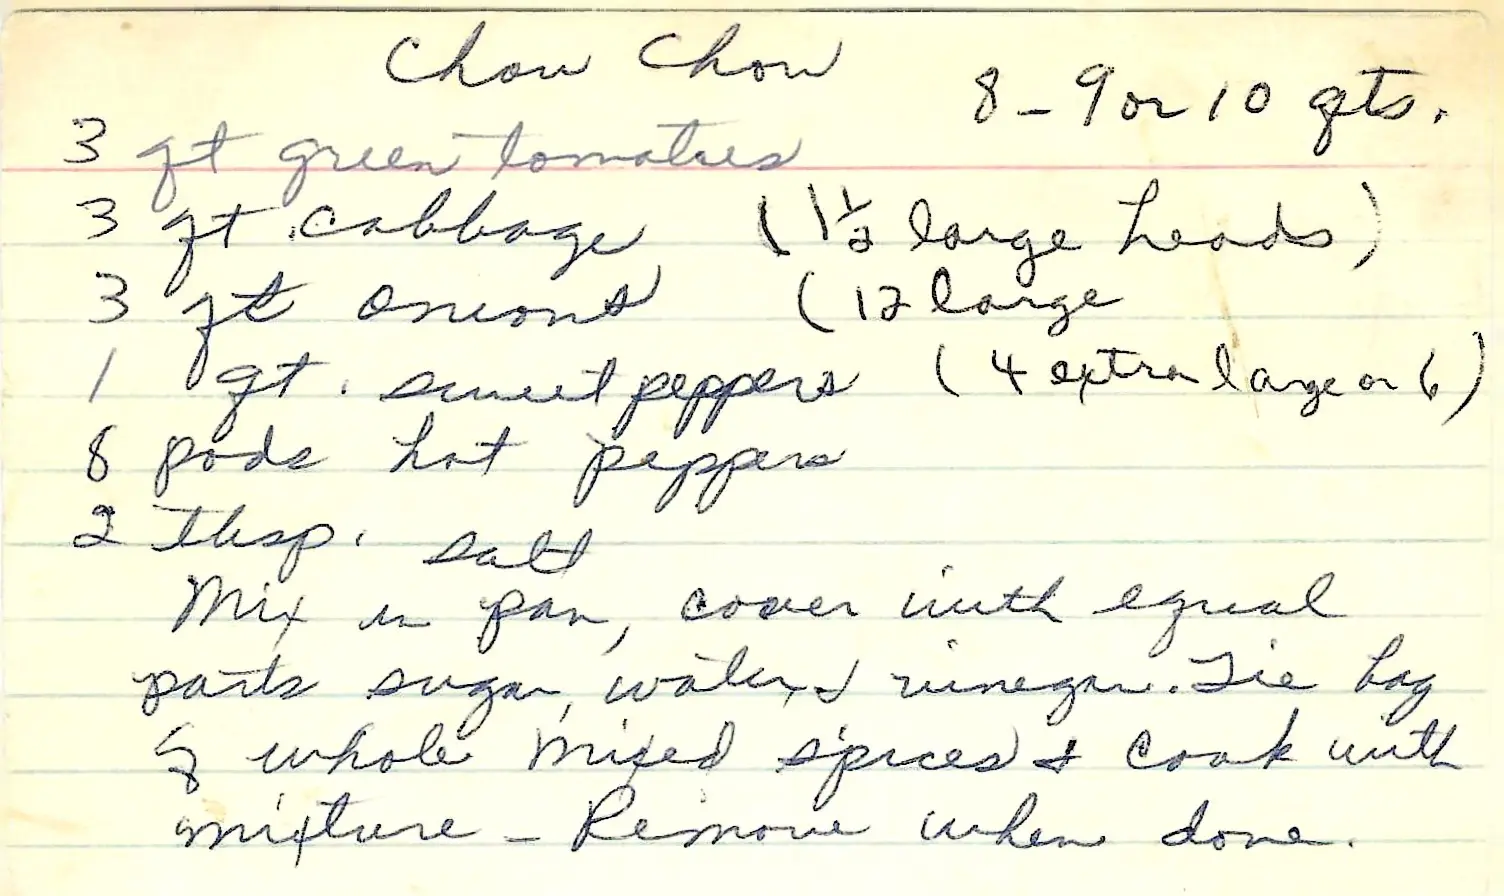 Chow Chow
8 - 9 or 10 qts.
3 qt green tomatoes
3 qt cabbage (1 1/2 large heads)
3 qt onions (12 large
1 qt. sweet peppers (4 extra large or 6)
8 pods hot peppers
2 tbsp. salt
Mix in pan, cover with equal
parts sugar, water, & vinegar. Tie bag
of whole mixed spices & cook with
mixture - Remove when done.